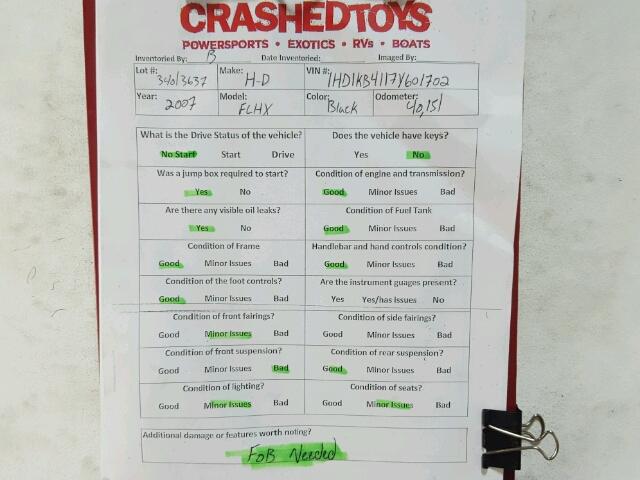 CRASHEDTOYS
POWERSPORTS • EXOTICS • RVs • BOATS
Inventoried By: B Date Inventoried: Imaged By:
Lot #: 34013637 Make: H-D VIN #: 1HD1KB4117Y601702
Year: 2007 Model: FLHX Color: Black Odometer: 40,151
What is the Drive Status of the vehicle? Does the vehicle have keys?
No Start Start Drive Yes No
Was a jump box required to start? Condition of engine and transmission?
Yes No Good Minor Issues Bad
Are there any visible oil leaks? Condition of Fuel Tank
Yes No Good Minor Issues Bad
Condition of Frame Handlebar and hand controls condition?
Good Minor Issues Bad Good Minor Issues Bad
Condition of the foot controls? Are the instrument guages present?
Good Minor Issues Bad Yes Yes/has Issues No
Condition of front fairings? Condition of side fairings?
Good Minor Issues Bad Good Minor Issues Bad
Condition of front suspension? Condition of rear suspension?
Good Minor Issues Bad Good Minor Issues Bad
Condition of lighting? Condition of seats?
Good Minor Issues Bad Good Minor Issues Bad
Additional damage or features worth noting?
FOB Needed